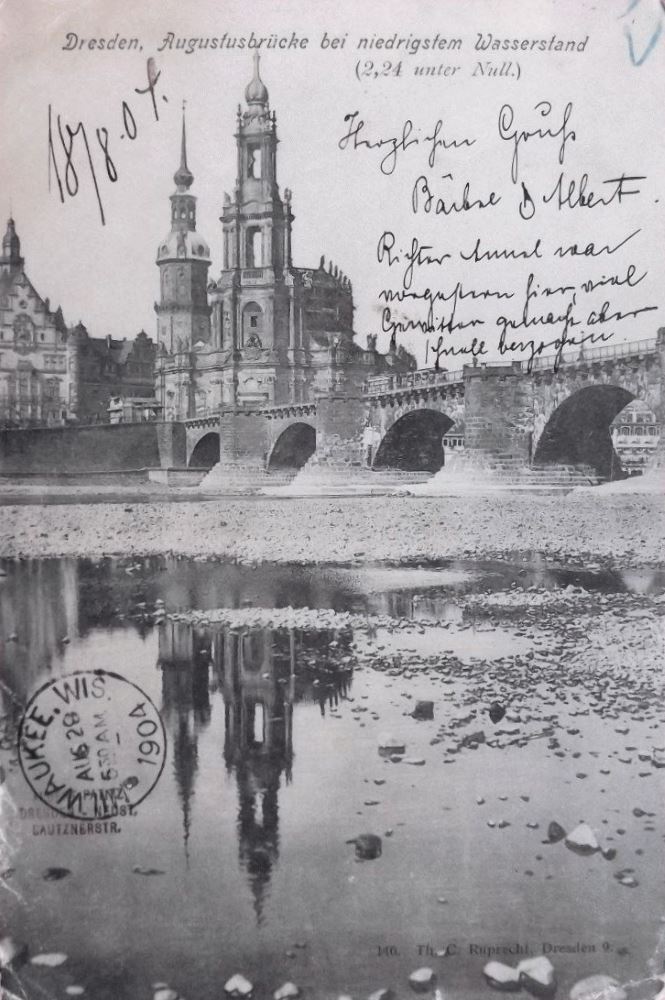 Dresden, Augustusbrücke bei niedrigstem Wasserstand
(2,24 unter Null.)
18/8.04.
Herzlichen Gruß
Albert.
Richter war
vorgestern hier, viel
Gewitter gemacht aber
schnell verzogen
MILWAUKEE, WIS.
AUG 29
530 AM
1904
DRESDEN - NEUST.
BAUTZNERSTR.
146. Th. C. Ruprecht, Dresden 9.